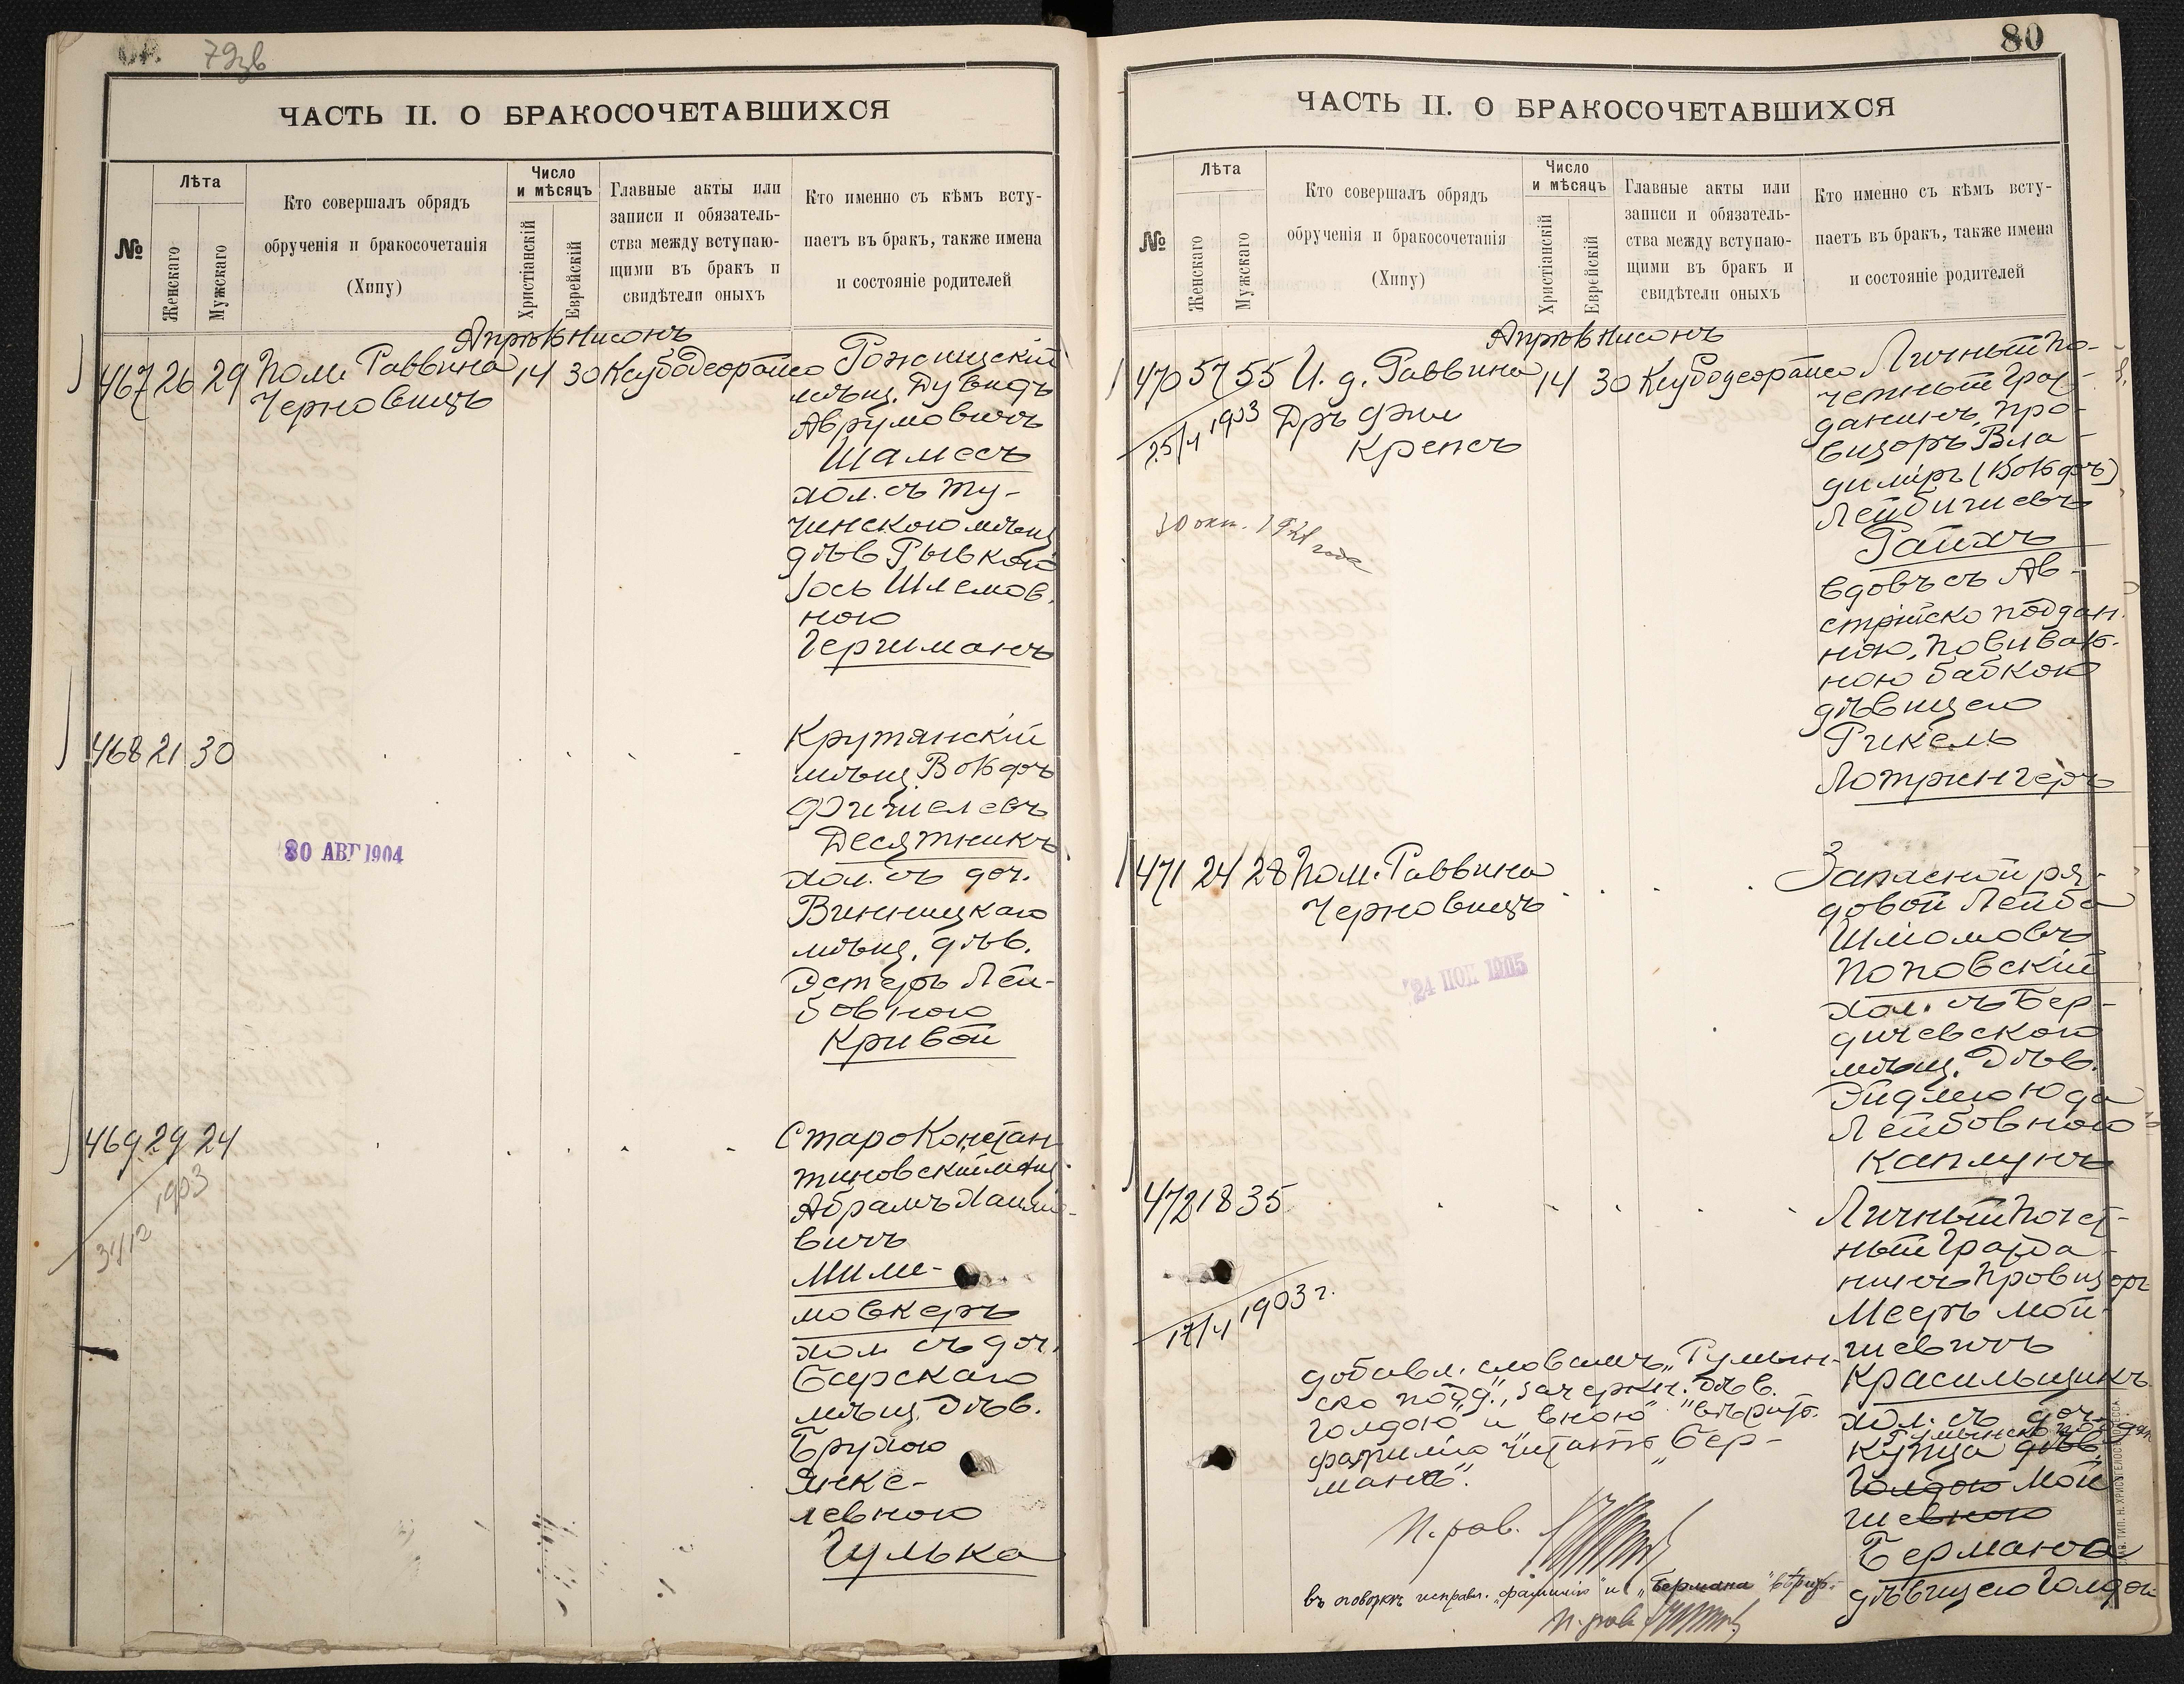 79зв
ЧАСТЬ II. О БРАКОСОЧЕТАВШИХСЯ
№
Лѣта
Женскаго
Мужскаго
Кто совершалъ обрядъ
обрученія и бракосочетанія
(Хипу)
Число
и мѣсяцъ
Христіанскій
Еврейскій
Главные акты или
записи и обязатель-
ства между вступаю-
щими въ бракъ и
свидѣтели оныхъ
Кто именно съ кѣмъ всту-
паетъ въ бракъ, также имена
и состояніе родителей
Нисонъ
467 26 29 Пом. Раввина 14 30
Черновицъ
Рожищскій
мѣщ. Дувидъ
Аврумовичъ
Шамесъ
хол. съ Ту-
чинскою мѣщ
дѣв Рывкой
Шлемов.
ною
Гергиманъ
468 21 30
Крутянскій
мѣщ. Вольфъ
Фишелевъ
Десятникъ
хол. съ доч.
Винницкаго
мѣщ. дѣв.
Эстеръ Лей-
бовною
Кривой
30 АВГ 1904
469 29 24
1903
31/12
СтароКонстан
тиновскій мѣщ.
Абрамъ Хаимо-
вичъ
Мили-
мовкеръ
хол съ доч.
Барскаго
мѣщ. Дѣв.
Брухою
Янке-
левною
Гулька
80
ЧАСТЬ II. О БРАКОСОЧЕТАВШИХСЯ
№
Лѣта
Женскаго
Мужскаго
Кто совершалъ обрядъ
обрученія и бракосочетанія
(Хипу)
Число
и мѣсяцъ
Христіанскій
Еврейскій
Главные акты или
записи и обязатель-
ства между вступаю-
щими въ бракъ и
свидѣтели оныхъ
Кто именно съ кѣмъ всту-
паетъ въ бракъ, также имена
и состояніе родителей
Нисонъ
470 57 55 И. д. Раввина 14 30
Дръ фил
Крепсъ
25/4 1903
30 окт. года
Личный по-
четный граж-
данинъ, про-
визоръ Вла-
димиръ (Вольфъ)
Лейбишевъ
Райхъ
вдовъ съ Ав-
стрійско поддан.
ною, повиваль-
ною бабкою
дѣвицею
Рикель
Лотрингеръ
471 24 28 Пом. Раввина
Черновицъ
24 1905
Запасной ря-
довой Лейба
Шмомовъ
Поповскій
хол. съ Бер-
дичевскою
мѣщ. Дѣв.
Лейбовною
Каплунъ
472 18 35
17/4 1903 г.
Личный Почет-
ный Гражда-
нинъ Провизоръ
Мееръ Мой-
шевичъ
Красильщикъ
хол. съ доч.
Румынско поддан
купца дѣв.
Голдою Мой
шевною
Бермана
дѣвицею Голдой
добавл. словамъ „Румын-
ско подд.", зачеркн. дѣв.
Голдою" и вною"
фамилію читать „Бер-
манъ".
П. рав.
въ оговоркѣ исправл. „фамилію" и „Бермана"
П. рав
ТИП. Н. ХРИСОГЕЛОСЪ